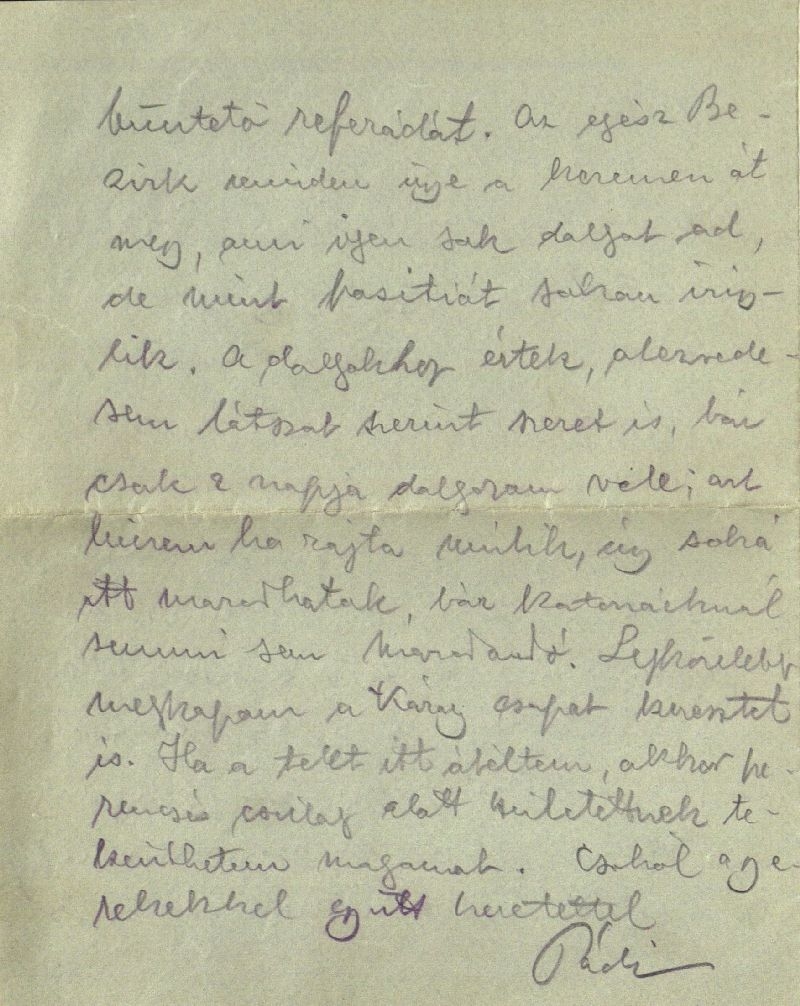 büntető referádát. Az egész Be-
zirk minden ügye a kezemen át
megy, ami igen sok dolgot ad,
de mint positiót sokan irig-
lik. A dolgokhoz értek, alezrede-
sem látszat szerint szeret is, bár
csak 2 napja dolgozom vele; azt
hiszem ha rajta múlik, úgy soká
itt maradhatok, bár katonáéknál
semmi sem maradandó. Legközelebb
megkapom a Károly csapat keresztet
is. Ha a telet itt átéltem, akkor sze-
rencsés csillag alatt születettnek te-
kinthetem magamat. Csókol a gye-
rekekkel együtt szeretettel